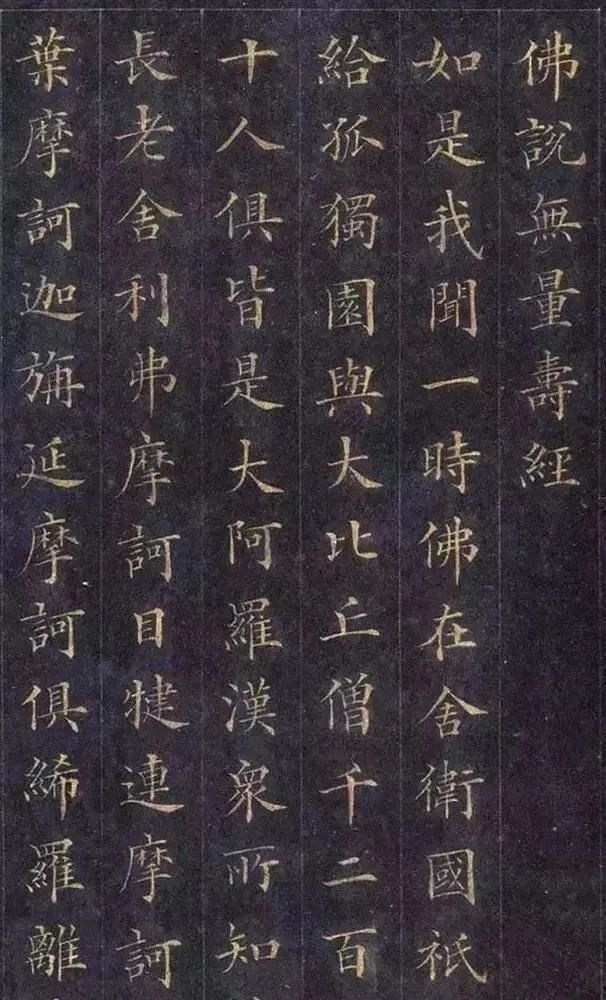 佛說無量壽經
如是我聞一時佛在舍衛國祇
給孤獨園與大比丘僧千二百
十人俱皆是大阿羅漢眾所知
長老舍利弗摩訶目犍連摩訶
葉摩訶迦旃延摩訶俱絺羅離